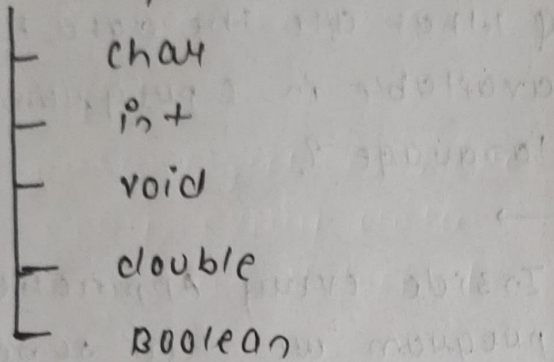 char
int
void
double
Boolean